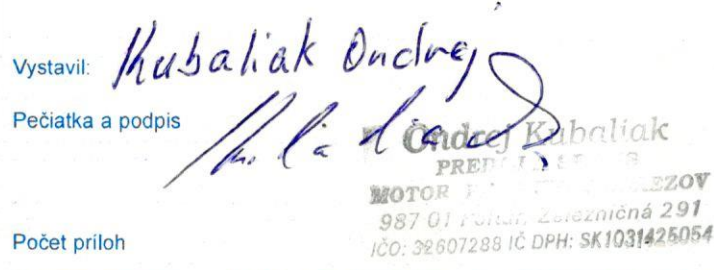 Vystavil: Kubaliak Ondrej
Pečiatka a podpis
Ondrej Kubaliak
MOTOR
987 01 Železničná 291
IČO: 32607288 IČ DPH: SK1031425054
Počet príloh